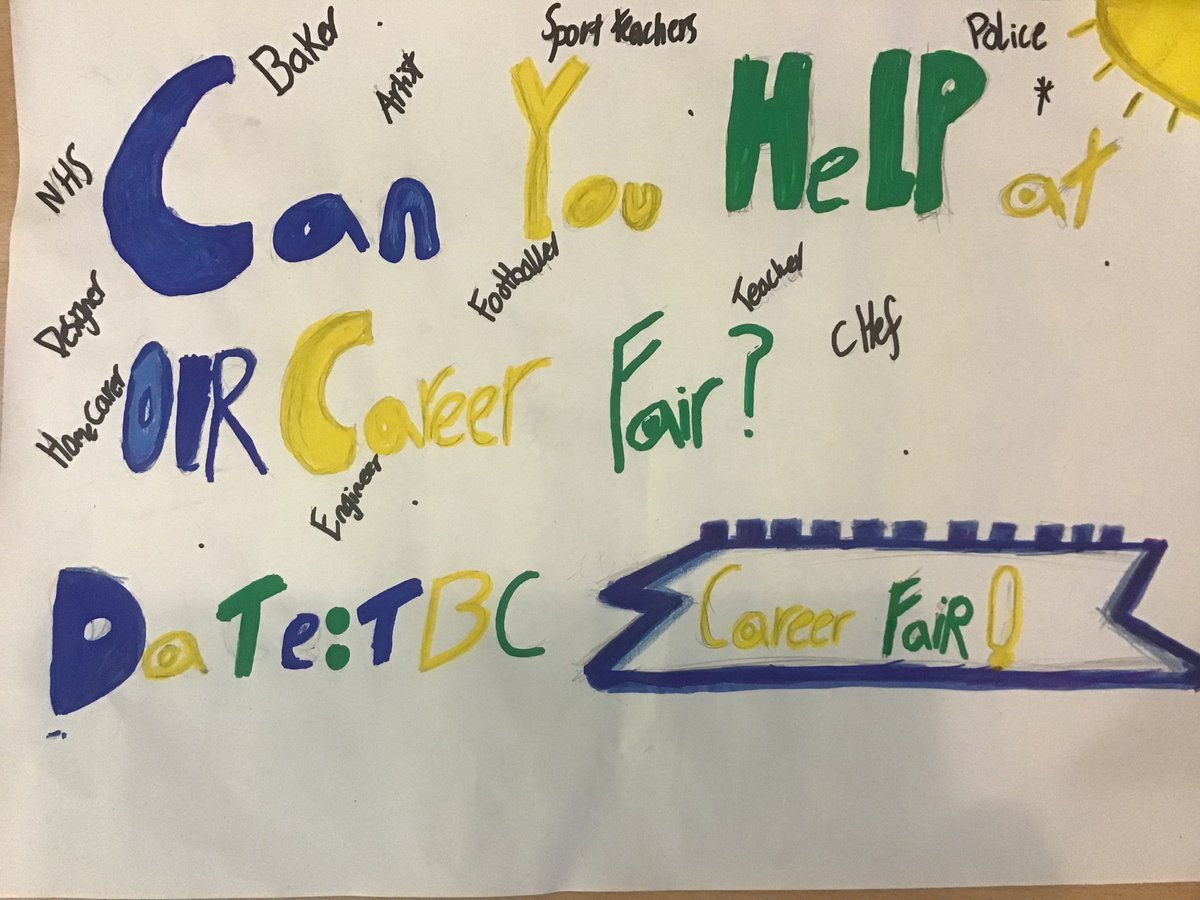 Baker
Artist
Sport teachers
Police
NHS
Can You HeLP at
Designer
Footballer
Teacher
cHef
Home Carer
OUR Career Fair?
Engineer
DaTe: TBC
Career FaiR!